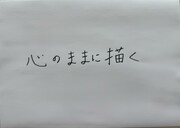 心のままに描く